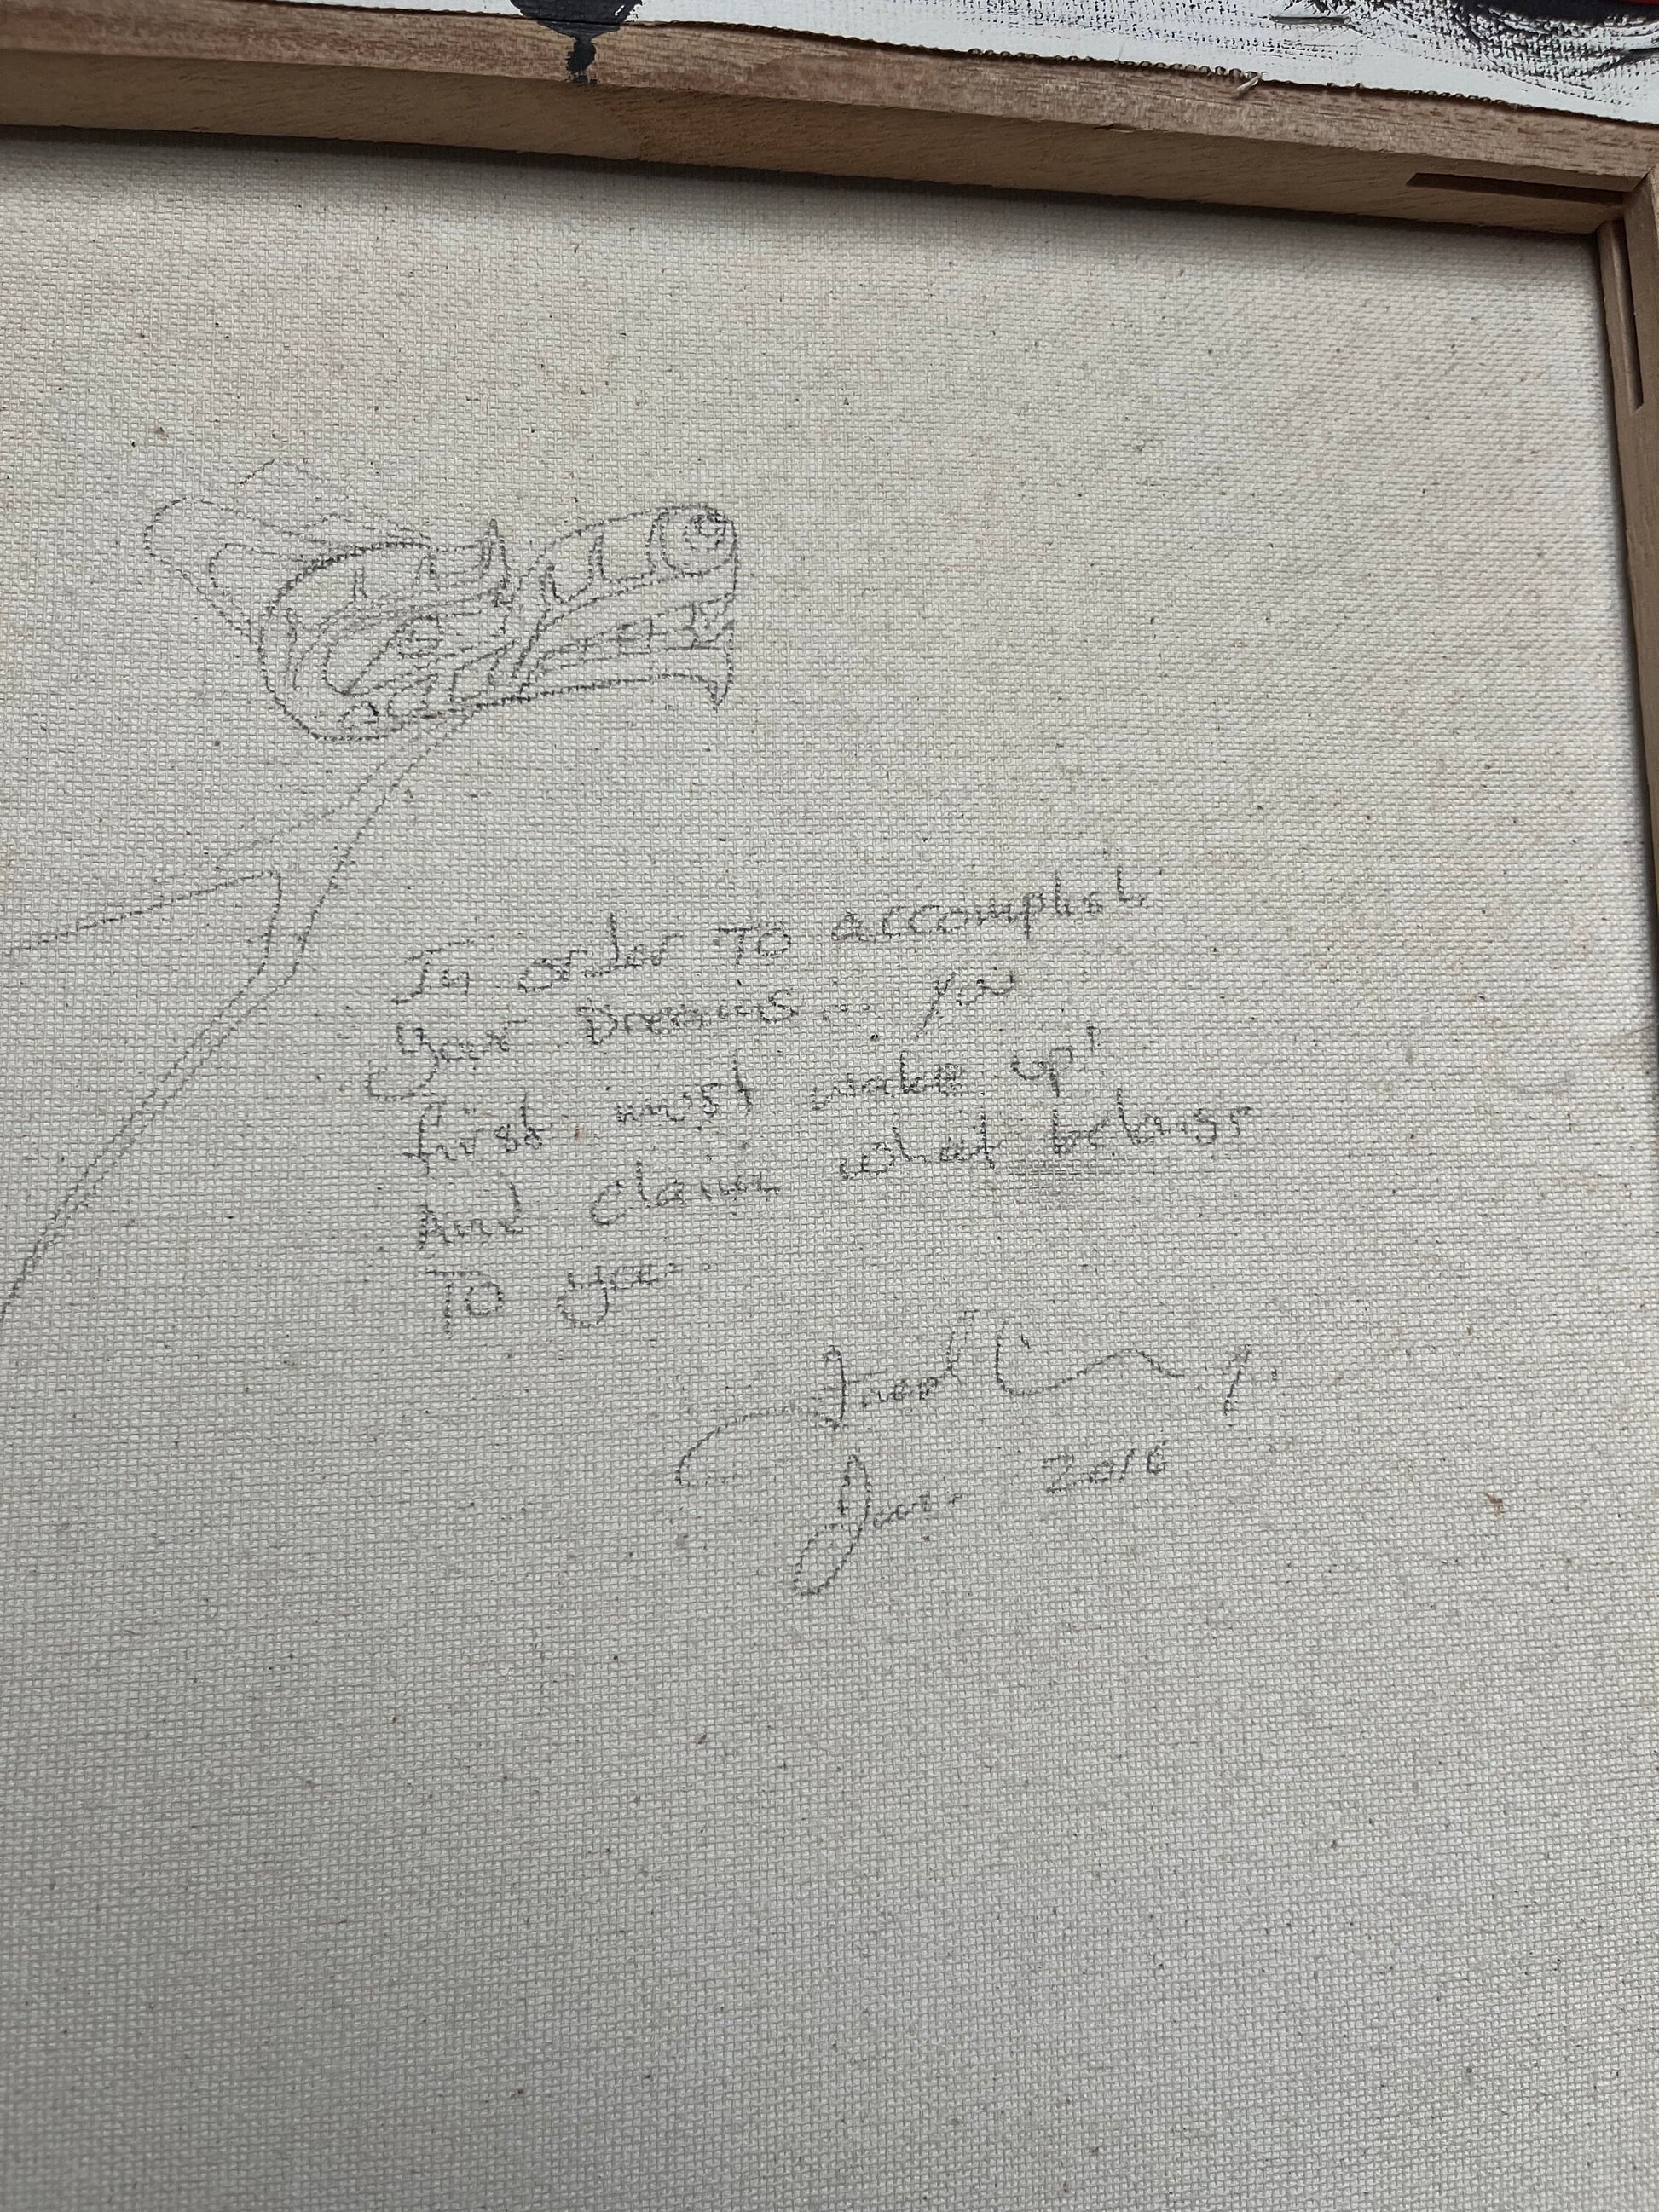 In order To accomplish
your Dreams... you
first must wake up!
And claim what belongs
To you.
2016